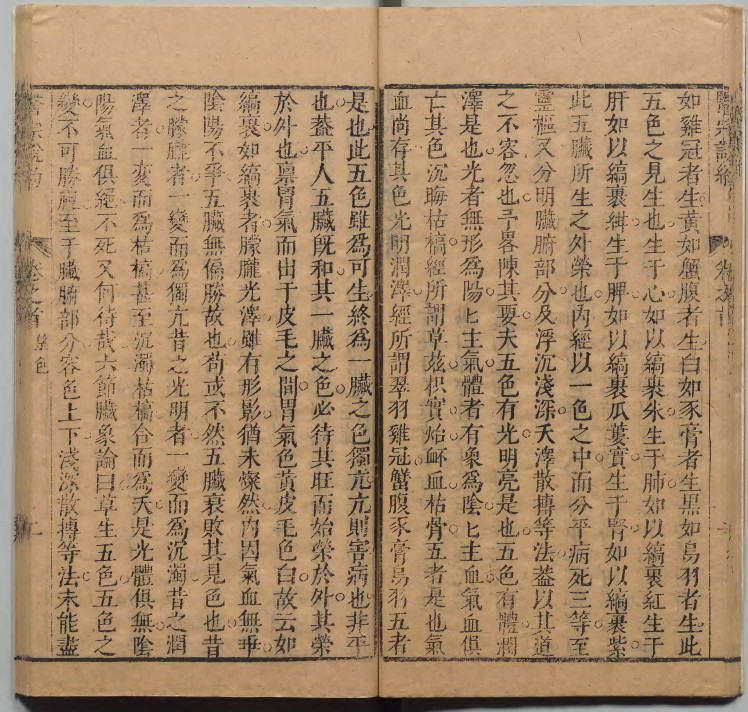 如雞冠者生黃如蟹腹者生白如豕膏者生黑如烏羽者生此
五色之見生也生于心如以縞裹朱生于肺如以縞裹紅生于
肝如以縞裹紺生于脾如以縞裹瓜蔞實生于腎如以縞裹紫
此五臟所生之外榮也內經以一色之中而分平病死三等至
靈樞又分明臟腑部分及浮沉淺深夭澤散摶等法蓋以其道
之不容忽也予畧陳其要夫五色有光明亮是也五色有體潤
澤是也光者無形為陽匕主氣體者有象為陰匕主血氣血俱
亡其色沉晦枯槁經所謂草茲枳實炲衃血枯骨五者是也氣
血尚存其色光明潤澤經所謂翠羽雞冠蟹腹豕膏烏羽五者
是也此五色雖為可生終為一臟之色獨亢亢則害病也非平
也蓋平人五臟旣和其一臟之色必待其旺而始榮於外其榮
於外也禀胃氣而出于皮毛之間胃氣色黃皮毛色白故云如
縞裹如縞裹者朦朧光澤雖有形影猶未燦然內因氣血無乖
陰陽不爭五臟無偏勝故也苟或不然五臟衰敗其見色也昔
之朦朧者一變而為獨亢昔之光明者一變而為沉濁昔之潤
澤者一變而為枯槁甚至沉濁枯槁合而為夭是光體俱無陰
陽氣血俱絕不死又何待哉六節臟象論曰草生五色五色之
變不可勝矚至于臟腑部分容色上下淺深散摶等法未能盡
卷之首 望色